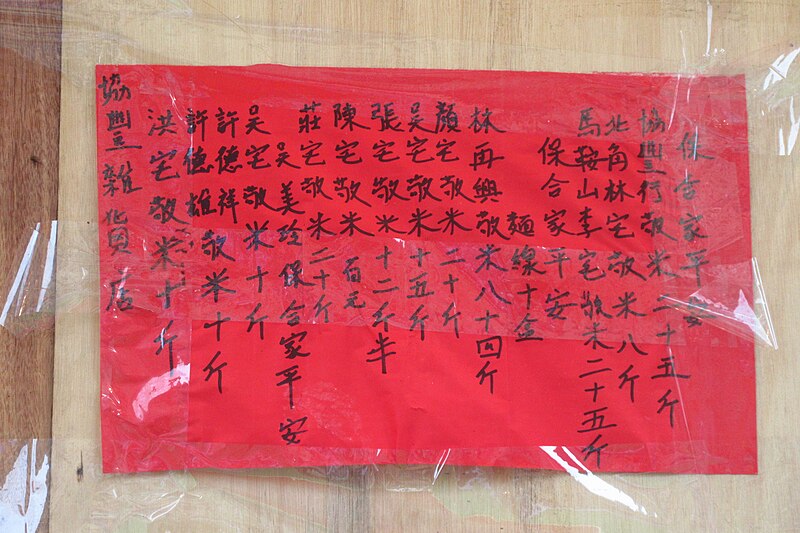 保合家平安
協豐行敬米二十五斤
北角林宅敬米八斤
馬鞍山李宅敬米二十五斤
保合家平安
麵線十盒
林再興敬米八十四斤
顏宅敬米二十斤
吳宅敬米十五斤
張宅敬米十二斤半
陳宅敬米 百元
莊宅敬米二十斤
吳美玲保合家平安
吳宅敬米十斤
許德祥
許德雄敬米十斤
洪宅敬米十斤
協豐雜貨店